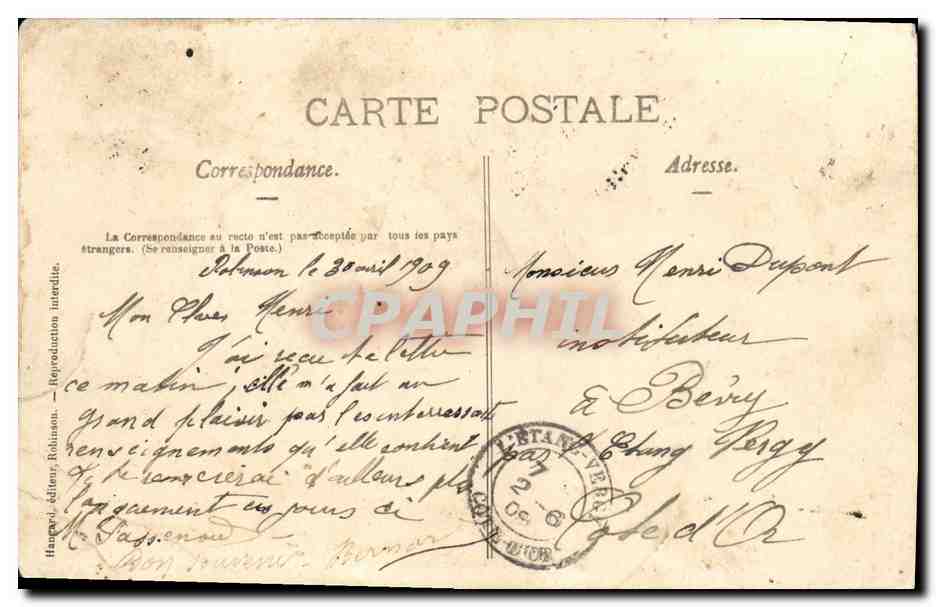 CARTE POSTALE
Correspondance.
La Correspondance au recto n'est pas acceptée par tous les pays
étrangers. (Se renseigner à la Poste.)
Robinson le 30 avril 1909
Mon Henri
J'ai reçu ta lettre
ce matin, elle m'a fait un
grand plaisir par les interressants
renseignements qu'elle contient
Je te remercierai d'ailleurs plus
longuement ces jours ci
M.
Bon souvenir Bernard
Adresse.
Monsieur Henri Dupont
instituteur
à Bévy
par l'Etang Vergy
Cote d'Or
L'ETANG-VERGY
7
2 - 6
09
COTE-D'OR
Hangard, éditeur, Robinson. — Reproduction interdite.
CPAPHIL